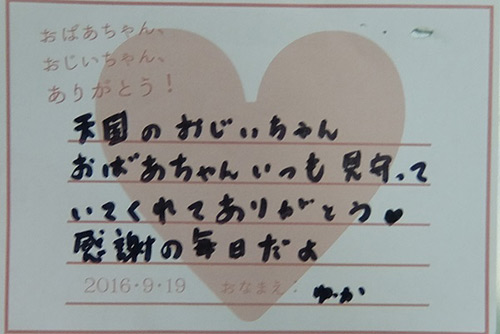 おばあちゃん、
おじいちゃん、
ありがとう！
天国のおじいちゃん
おばあちゃんいつも見守って
いてくれてありがとう♥
感謝の毎日だよ
2016・9・19 おなまえ：ゆか